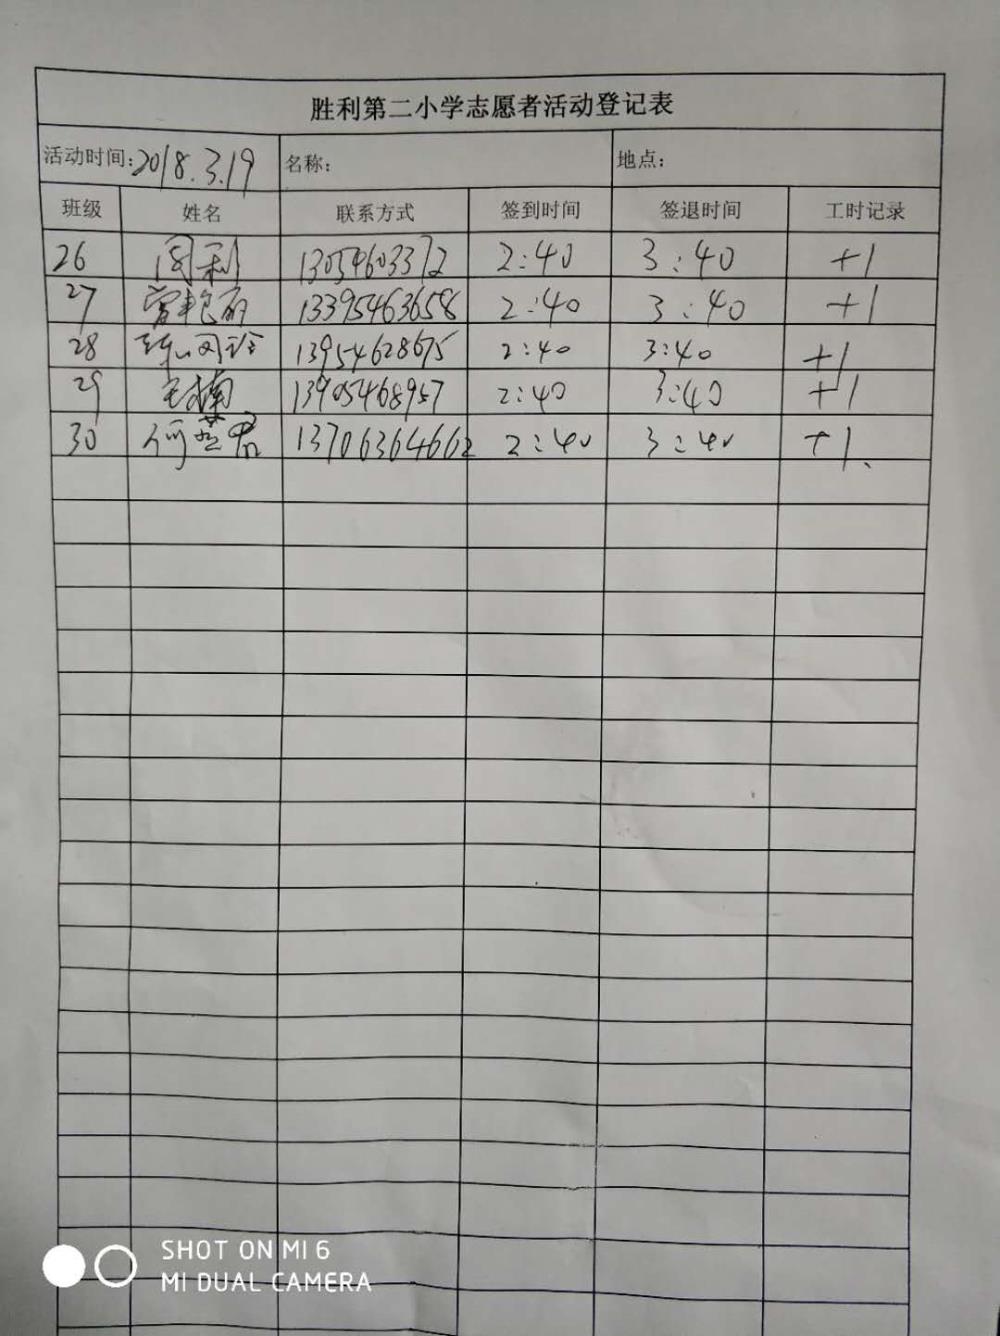 胜利第二小学志愿者活动登记表
活动时间:2018.3.19 名称: 地点:
班级 姓名 联系方式 签到时间 签退时间 工时记录
26 周利 13054603372 2:40 3:40 +1
27 曾艳丽 13395463658 2:40 3:40 +1
28 13954628675 2:40 3:40 +1
29 王楠 13905468957 2:40 3:40 +1
30 13706364662 2:40 3:40 +1.
SHOT ON MI 6
MI DUAL CAMERA